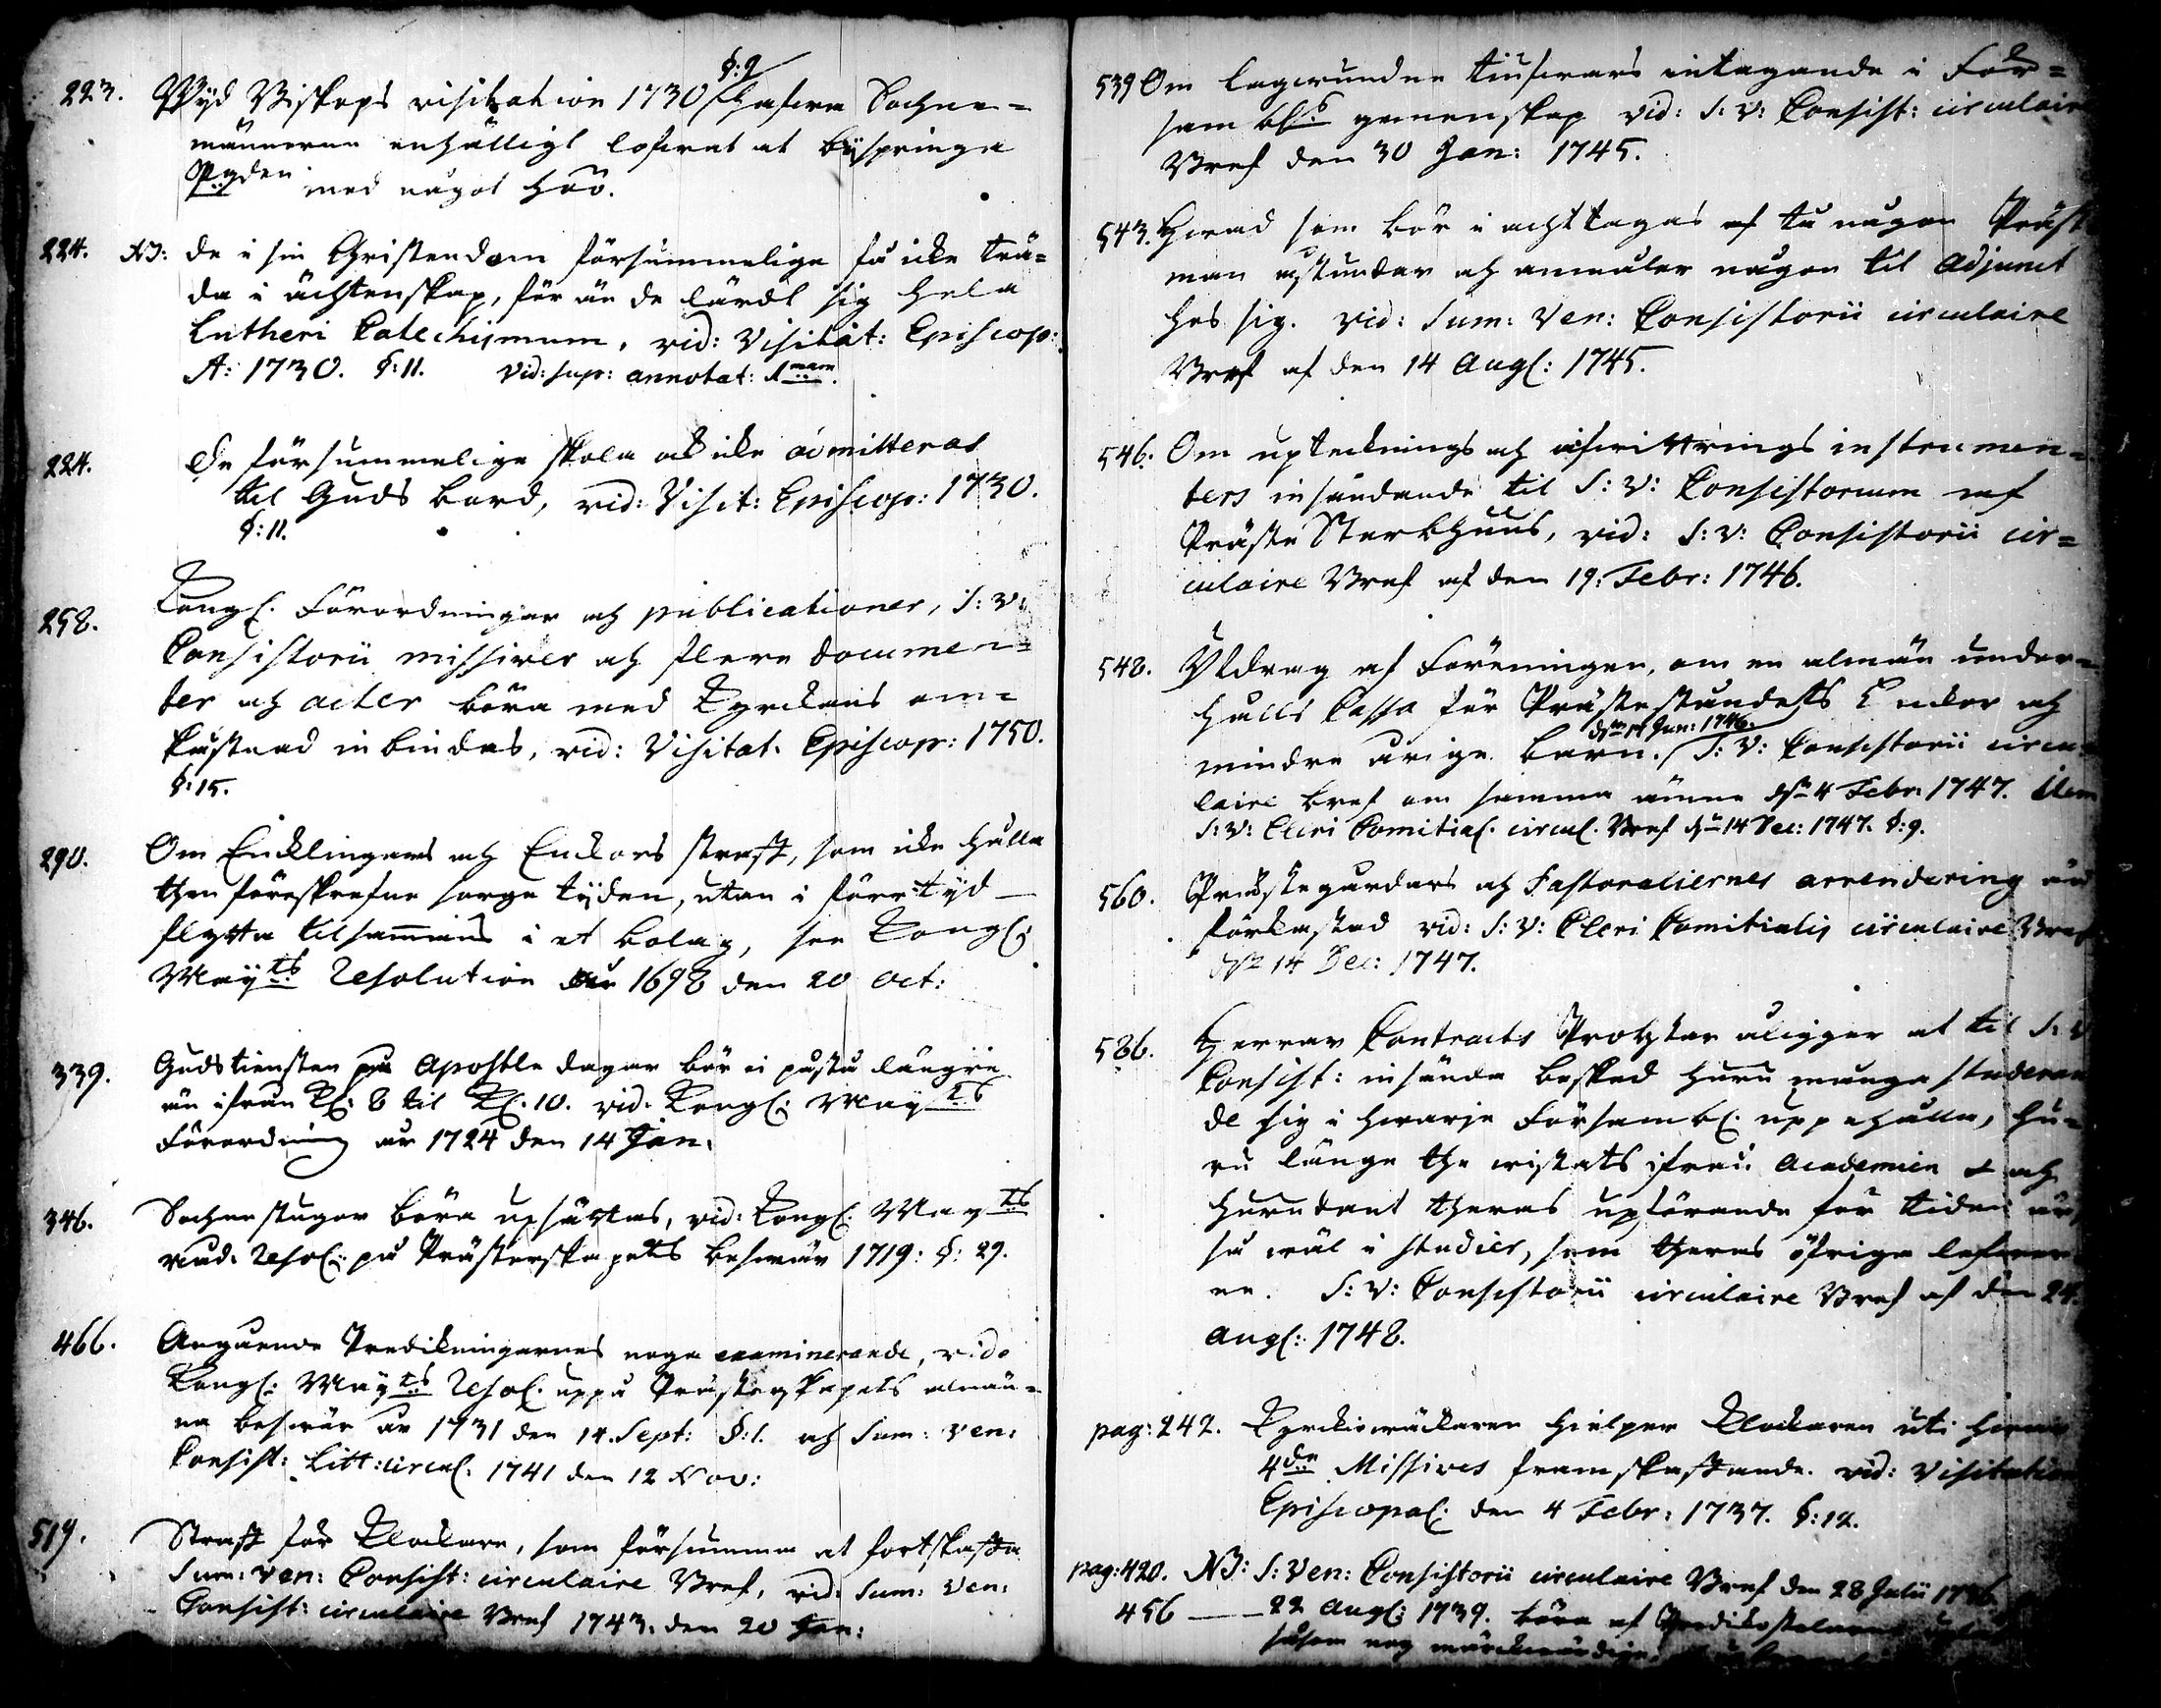 223. Wyd Biskops visitation 1730 §:9 hafwa Sochne=
männerna enhälligt lofwat at byspringa
med något höö.
224. NB: de i sin Christendom försummelige få icke trä=
da i ächtenskap, för än de lärdt sig hela
Lutheri Catechismum, vid: Visitat: Episcop:
A: 1730. §:11. Vid: sup: annotat: 1mam.
224. De försummelige skola ock icke admitteras
til Guds bord, vid: Visit: Episcop: 1730.
§:11.
258. Kongl. Förordningar och publicationer, S: V:
Consistorii missiver och flere documen=
ter och acter böra med Kyrckans om=
kåstnad inbindas, vid: Visitat. Episcop: 1750.
§:15.
290. Om Encklingars och Enckors straff, som icke hålla
then föreskrefne sorge tyden, utan i förr tyd
flytta tilsammans i et bolag, see Kongl:
Mayts Resolution år 1698 den 20 Oct:
339. Gudstiensten på Apostle dagar bör ei påstå längre
än ifrån Kl: 8 til Kl. 10. vid. Kongl: Mayts
Förordning år 1724 den 14 Jan.
346. Sochnestugor böra upsättas, vid: Kongl: Mayts
Resol: på Prästerskapets beswär 1719: §: 29.
466. Angående Predikningarnes noga examinerande, vid:
Kongl: Mayts Resol. uppå Prästerskapets almän=
na beswär år 1731 den 14. Sept: §:1. och Sum: Ven:
Consist: Litt: circul: 1741 den 12 Nov:
519. Straff för Klockare, som försumma at fortskaffa
Sum: Ven: Consist: circulaire Bref, vid: Sum: Ven:
Consist: circulaire Bref 1743. den 20 Jan:
539 Om lagwundne tiufwars intagande i För=
samblgs gemenskap vid: S: V: Consist: circulaire
Bref den 30 Jan: 1745.
543. Hwad som bör i acht tagas af tå någon Präst
man åstundar och anmäler någon til Adjunct
hos sig. vid: Sum: Ven: Consistorii circulaire
Bref af den 14 Aug: 1745.
546. Om upteknings och afwittrings instrumen=
ters insändande til S: V: Consistorium af
Präste Sterbhuus, vid: S: V: Consistorii cir=
culaire Bref af den 19: Febr: 1746.
548. Utdrag af Föreningen, om en almän under=
hålls Cassa för Prästeståndets Enckor och
den 14 Jun: 1746.
mindre årige barn. S: V: Consistorii circu=
laire bref om samma ämne den 4 Febr 1747. Item
S: V: Cleri Comitial. circul. Bref den 14 Dec: 1747. §: 9.
560. Prästegårdars och Pastoraliernes arrendering är
förkastad vid: S: V: Cleri Comitialis circulaire Bref
den 14 Dec: 1747.
586. Herrar Contracts Probstar åligger at til S: V
Consist: insända besked huru många studeran
de sig i hwarje Försambl: uppehålla, hu=
ru länge the wistats ifrån Academien och
hurudant theras upförande för tiden är,
så wäl i studier, som theras öfriga lefwer
ne. S: V: Consistorii circulaire Bref af den 24.
Aug: 1748.
pag: 242. Kyrckiowäcktaren hielper Klockaren uti hwar
4de Missives framskaffande. vid: Visitation
Episcopal: den 4 Febr: 1737. §: 12.
pag: 420. NB: S: Ven: Consistorii circulaire Bref den 28 Julii 1736
456 — 22 Aug: 1739. böra af Predikostolarne
såsom nog märckwärdige